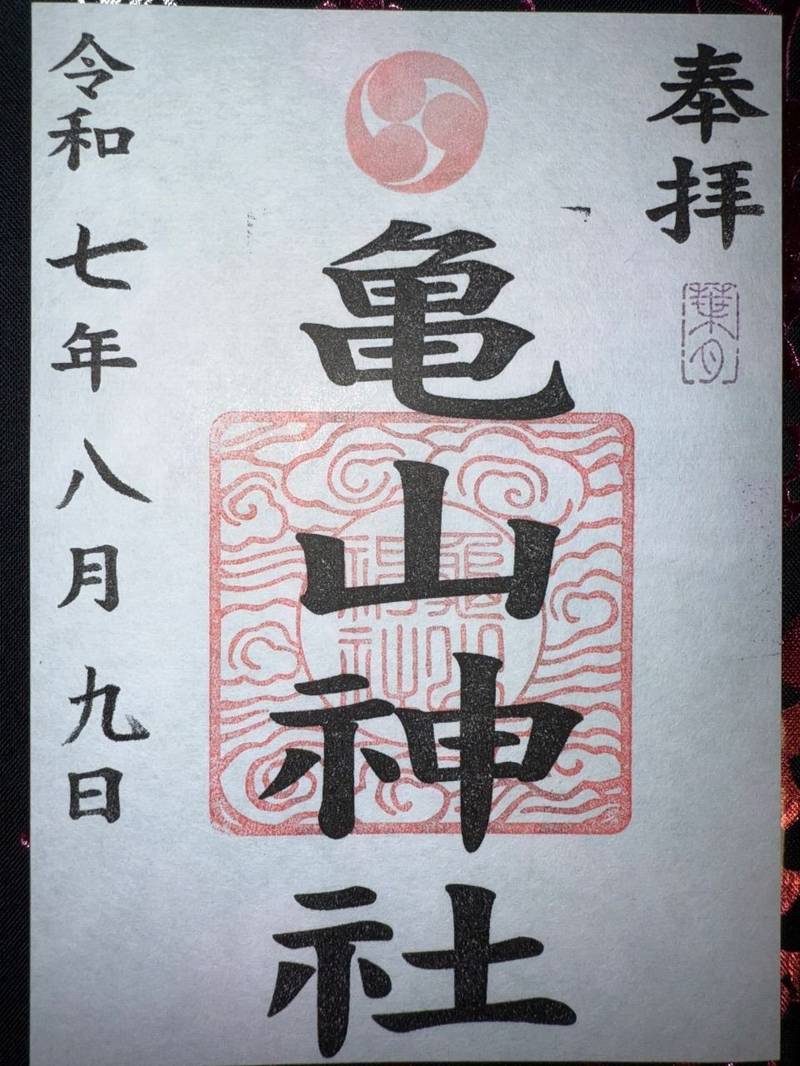 奉拝
葉月
亀山神社
令和七年八月九日